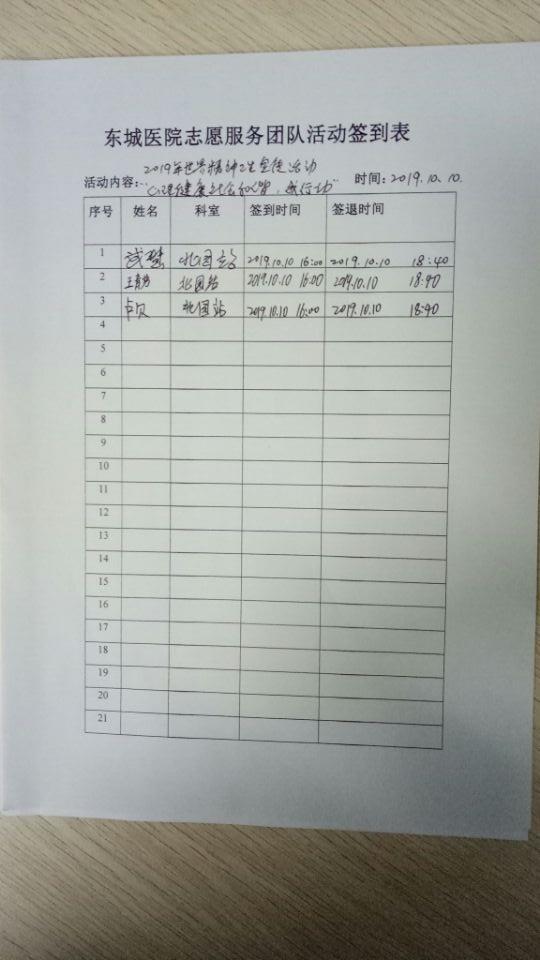 东城医院志愿服务团队活动签到表
2019年世界精神卫生宣传活动
活动内容：“心理健康社会和谐，我行动” 时间：2019.10.10.
序号 姓名 科室 签到时间 签退时间
1 北国站 2019.10.10 16:00 2019.10.10 18:40
2 北国站 2019.10.10 16:00 2019.10.10 18:40
3 北国站 2019.10.10 16:00 2019.10.10 18:40
4
5
6
7
8
9
10
11
12
13
14
15
16
17
18
19
20
21